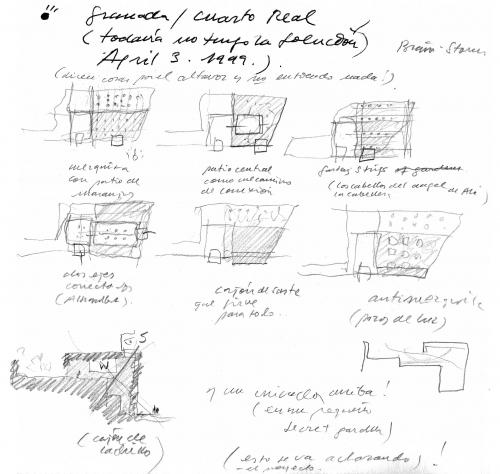 Granada / Cuarto Real
(todavía no tengo la solución)
April 3. 1999.)
Brain-Storm
(dicen cosas por el altavoz y no entiendo nada!)
mezquita
con patio de
naranjos
patio central
como mecanismo
de conexión
strips of gardens
(los cabellos del angel de
la cabellera
dos ejes
conectados
(Alhambra).
cajón de sastre
que sirve
para todo.
antimezquita
(pozos de luz)
S
W
(cajón de
ladrillo)
y un mirador arriba!
(en un pequeño
secret garden
(esto se va aclarando)!
- el proyecto.